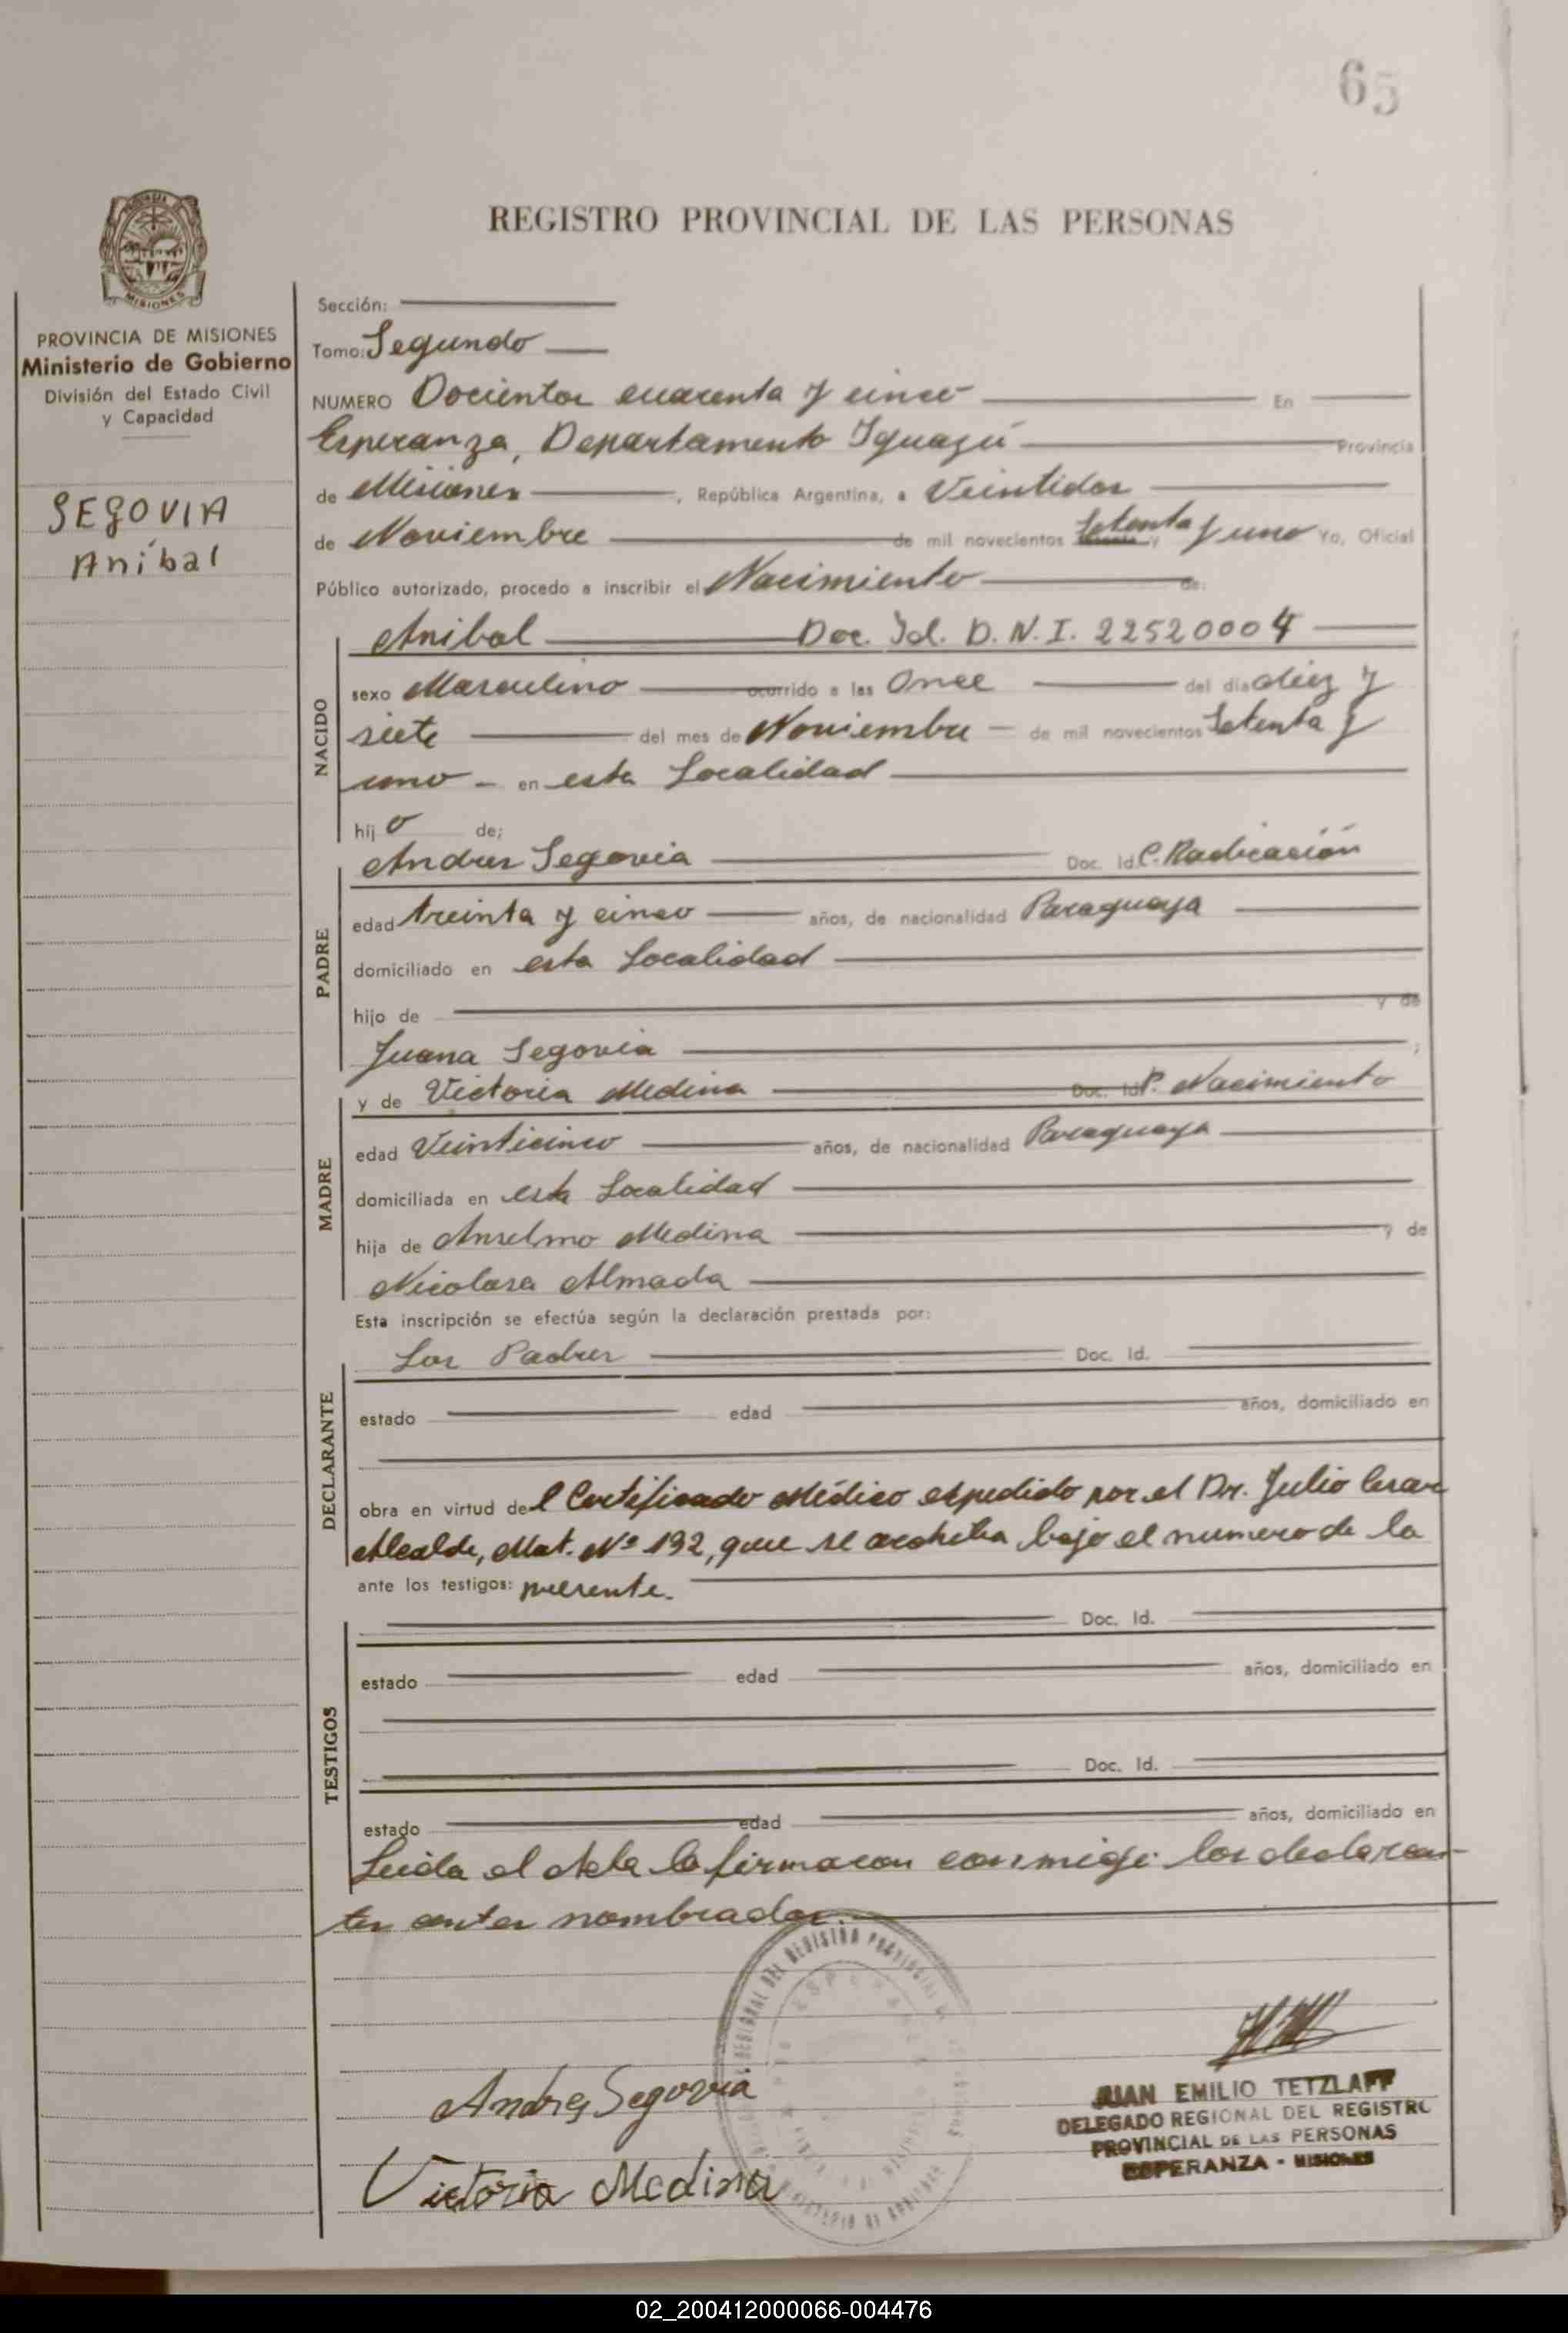 65
REGISTRO PROVINCIAL DE LAS PERSONAS
PROVINCIA DE MISIONES
Ministerio de Gobierno
División del Estado Civil
y Capacidad
SEGOVIA
Aníbal
Sección:
Tomo: Segundo
NUMERO Docientos cuarenta y cinco En
Esperanza, Departamento Iguazú Provincia
de Misiones, República Argentina, a Veintidos
de Noviembre de mil novecientos Setenta y uno Yo, Oficial
Público autorizado, procedo a inscribir el Nacimiento de:
NACIDO
Anibal Doc. Id. D.N.I. 22520004
sexo Masculino ocurrido a las Once del día diez y
siete del mes de Noviembre de mil novecientos Setenta y
uno en esta Localidad
hij o de;
PADRE
Andres Segovia Doc. Id. C. Radicación
edad treinta y cinco años, de nacionalidad Paraguaya
domiciliado en esta Localidad
hijo de y de
Juana Segovia ;
MADRE
y de Victoria Medina Doc. Id. P. Nacimiento
edad Veinticinco años, de nacionalidad Paraguaya
domiciliada en esta Localidad
hija de Anselmo Medina y de
Nicolasa Almada
Esta inscripción se efectúa según la declaración prestada por:
DECLARANTE
Los Padres Doc. Id.
estado edad años, domiciliado en
obra en virtud del Certificado Médico expedido por el Dr. Julio Cesar
Alcalde, Mat. Nº 192, que se archiba bajo el numero de la
ante los testigos: presente.
TESTIGOS
Doc. Id.
estado edad años, domiciliado en
Doc. Id.
estado edad años, domiciliado en
Leida el Acta la firmaron conmigo los declaran-
tes antes nombrados.
Andres Segovia
Victoria Medina
JUAN EMILIO TETZLAFF
DELEGADO REGIONAL DEL REGISTRO
PROVINCIAL DE LAS PERSONAS
ESPERANZA - MISIONES
02_200412000066-004476